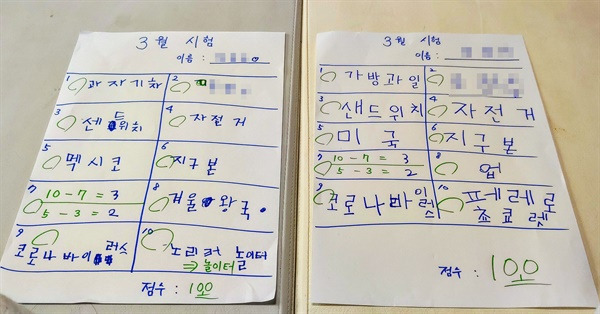 3월 시험
이름 :
1 과자기차
2
3 샌드위치
4 자절거
5 멕시코
6 지구본
7 10 - 7 = 3
5 - 3 = 2
8 겨울왕국.
9 코로나바이러스
10 노리러 놀이터
⇒ 놀이터
점수 : 100
3월 시험
이름 :
1 가방과일
2
3 샌드위치
4 자전거
5 미국
6 지구본
7 10 - 7 = 3
5 - 3 = 2
8 업
9 코로나바이러스
10 페레로
쵸코렛
점수 : 100